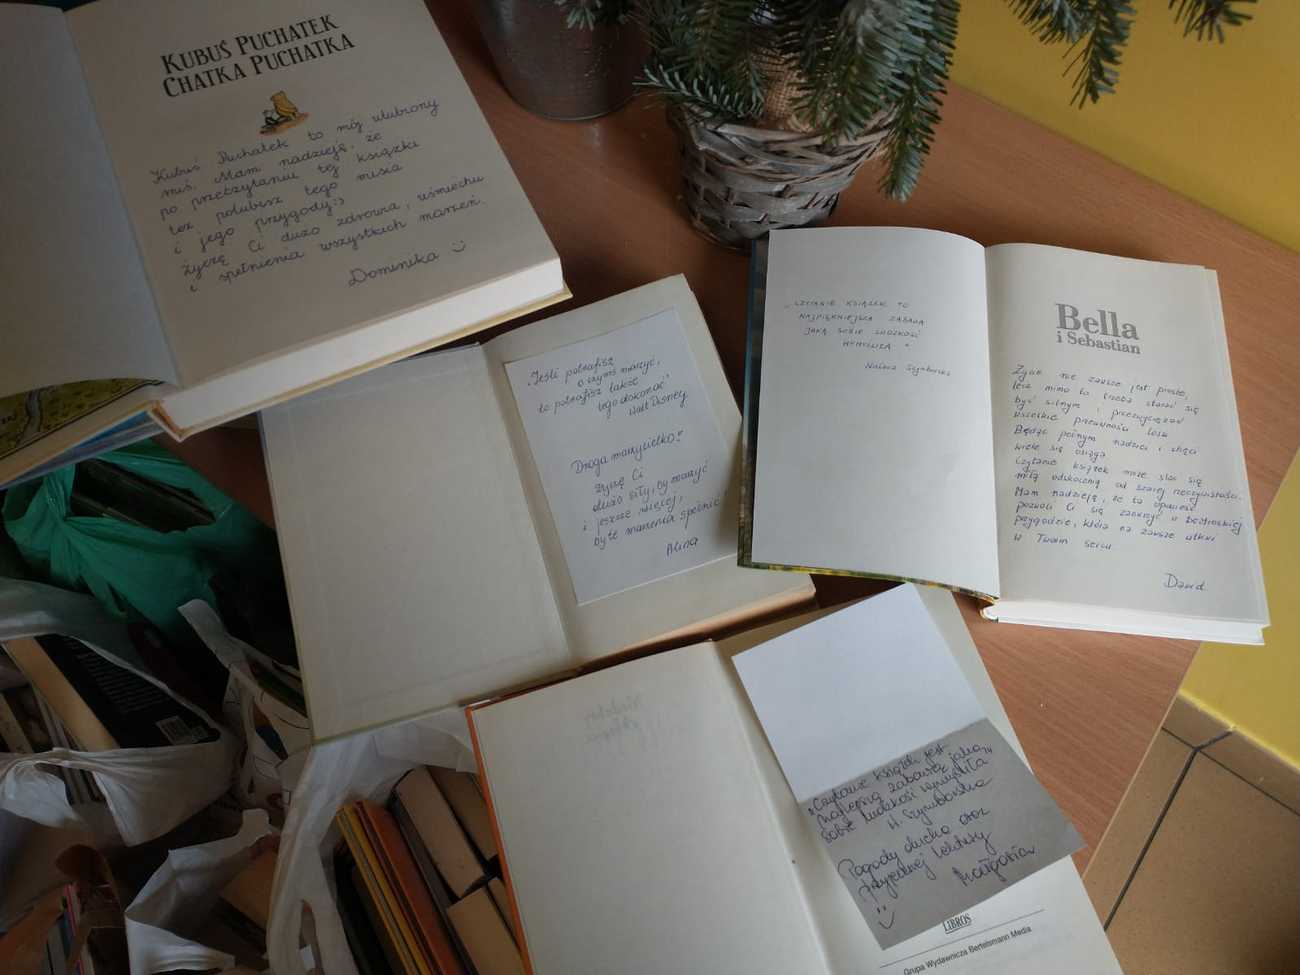 KUBUŚ PUCHATEK
CHATKA PUCHATKA
Kubuś Puchatek to mój ulubiony
miś. Mam nadzieję, że
po przeczytaniu tej książki
też polubisz tego misia
i jego przygody:)
Życzę Ci dużo zdrowia, uśmiechu
i spełnienia wszystkich marzeń.
Dominika
„Jeśli potrafisz
o czymś marzyć,
to potrafisz także
tego dokonać"
Walt Disney
Droga marzycielko!
Życzę Ci
dużo siły, by marzyć
i jeszcze więcej,
by te marzenia spełnić
Alina
„CZYTANIE KSIĄŻEK TO
NAJPIĘKNIEJSZA ZABAWA
JAKĄ SOBIE LUDZKOŚĆ
WYMYŚLIŁA"
Bella
i Sebastian
Życie nie zawsze jest proste,
lecz mimo to trzeba starać się
być silnym i przezwyciężać
wszelkie przeciwności losu
Będąc pełnym nadziei i chęci
wiele się osiąga
Czytanie książek może stać się
miłą odskocznią od szarej rzeczywistości.
Mam nadzieję, że ta opowieść
pozwoli Ci się zanurzyć w beztroskiej
przygodzie, która na zawsze utkwi
w Twoim sercu
Dawid
„Czytanie książek jest
najlepszą zabawą jaką
sobie ludzkość wymyśliła"
W. Szymborska
Pogody ducha oraz
przyjemnej lektury
Małgosia
LIBROS
Grupa Wydawnicza Bertelsmann Media